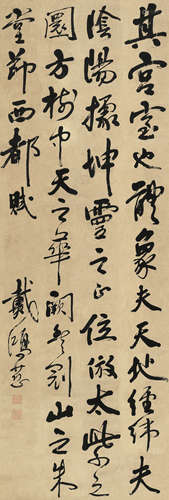 其宮室也體象夫天地經緯夫
陰陽據坤靈之正位倣太紫之
圜方樹中天之華闕豐冠山之朱
堂節西都賦 戴鴻慈